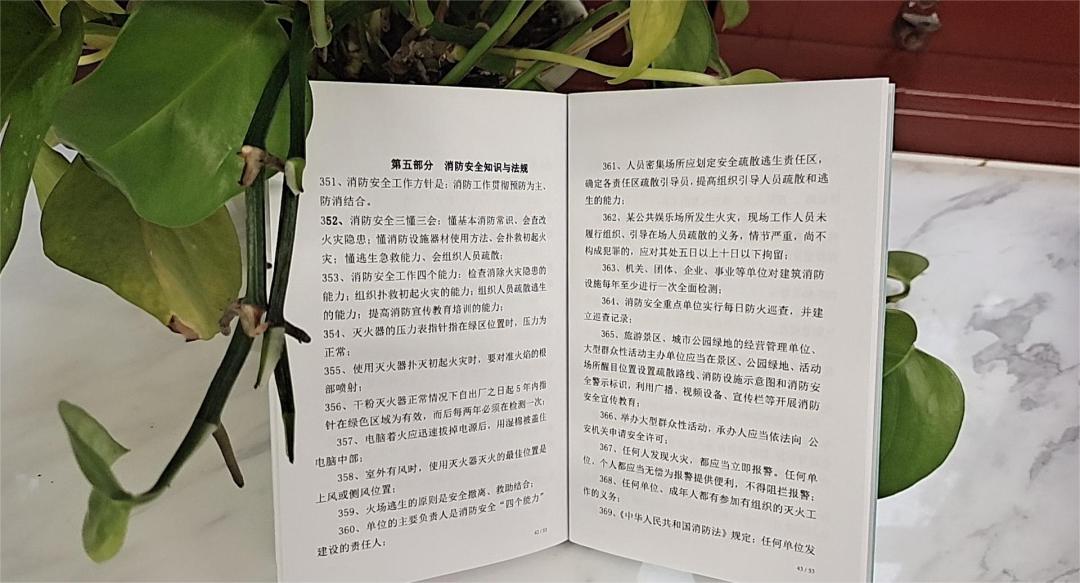 第五部分 消防安全知识与法规
351、消防安全工作方针是：消防工作贯彻预防为主、
防消结合。
352、消防安全三懂三会；懂基本消防常识、会查改
火灾隐患；懂消防设施器材使用方法、会扑救初起火
灾；懂逃生急救能力、会组织人员疏散；
353、消防安全工作四个能力；检查消除火灾隐患的
能力；组织扑救初起火灾的能力；组织人员疏散逃生
的能力；提高消防宣传教育培训的能力；
354、灭火器的压力表指针指在绿区位置时，压力为
正常；
355、使用灭火器扑灭初起火灾时，要对准火焰的根
部喷射；
356、干粉灭火器正常情况下自出厂之日起5年内指
针在绿色区域为有效，而后每两年必须在检测一次；
357、电脑着火应迅速拔掉电源后，用湿棉被盖住
电脑中部；
358、室外有风时，使用灭火器灭火的最佳位置是
上风或侧风位置；
359、火场逃生的原则是安全撤离、救助结合；
360、单位的主要负责人是消防安全“四个能力”
建设的责任人；
42/53
361、人员密集场所应划定安全疏散逃生责任区，
确定各责任区疏散引导员，提高组织引导人员疏散和逃
生的能力；
362、某公共娱乐场所发生火灾，现场工作人员未
履行组织、引导在场人员疏散的义务，情节严重，尚不
构成犯罪的，应对其处五日以上十日以下拘留；
363、机关、团体、企业、事业等单位对建筑消防
设施每年至少进行一次全面检测；
364、消防安全重点单位实行每日防火巡查，并建
立巡查记录；
365、旅游景区、城市公园绿地的经营管理单位、
大型群众性活动主办单位应当在景区、公园绿地、活动
场所醒目位置设置疏散路线、消防设施示意图和消防安
全警示标识，利用广播、视频设备、宣传栏等开展消防
安全宣传教育；
366、举办大型群众性活动，承办人应当依法向 公
安机关申请安全许可；
367、任何人发现火灾，都应当立即报警。任何单
位，个人都应当无偿为报警提供便利，不得阻拦报警；
368、任何单位、成年人都有参加有组织的灭火工
作的义务；
369、《中华人民共和国消防法》规定：任何单位发
43/53